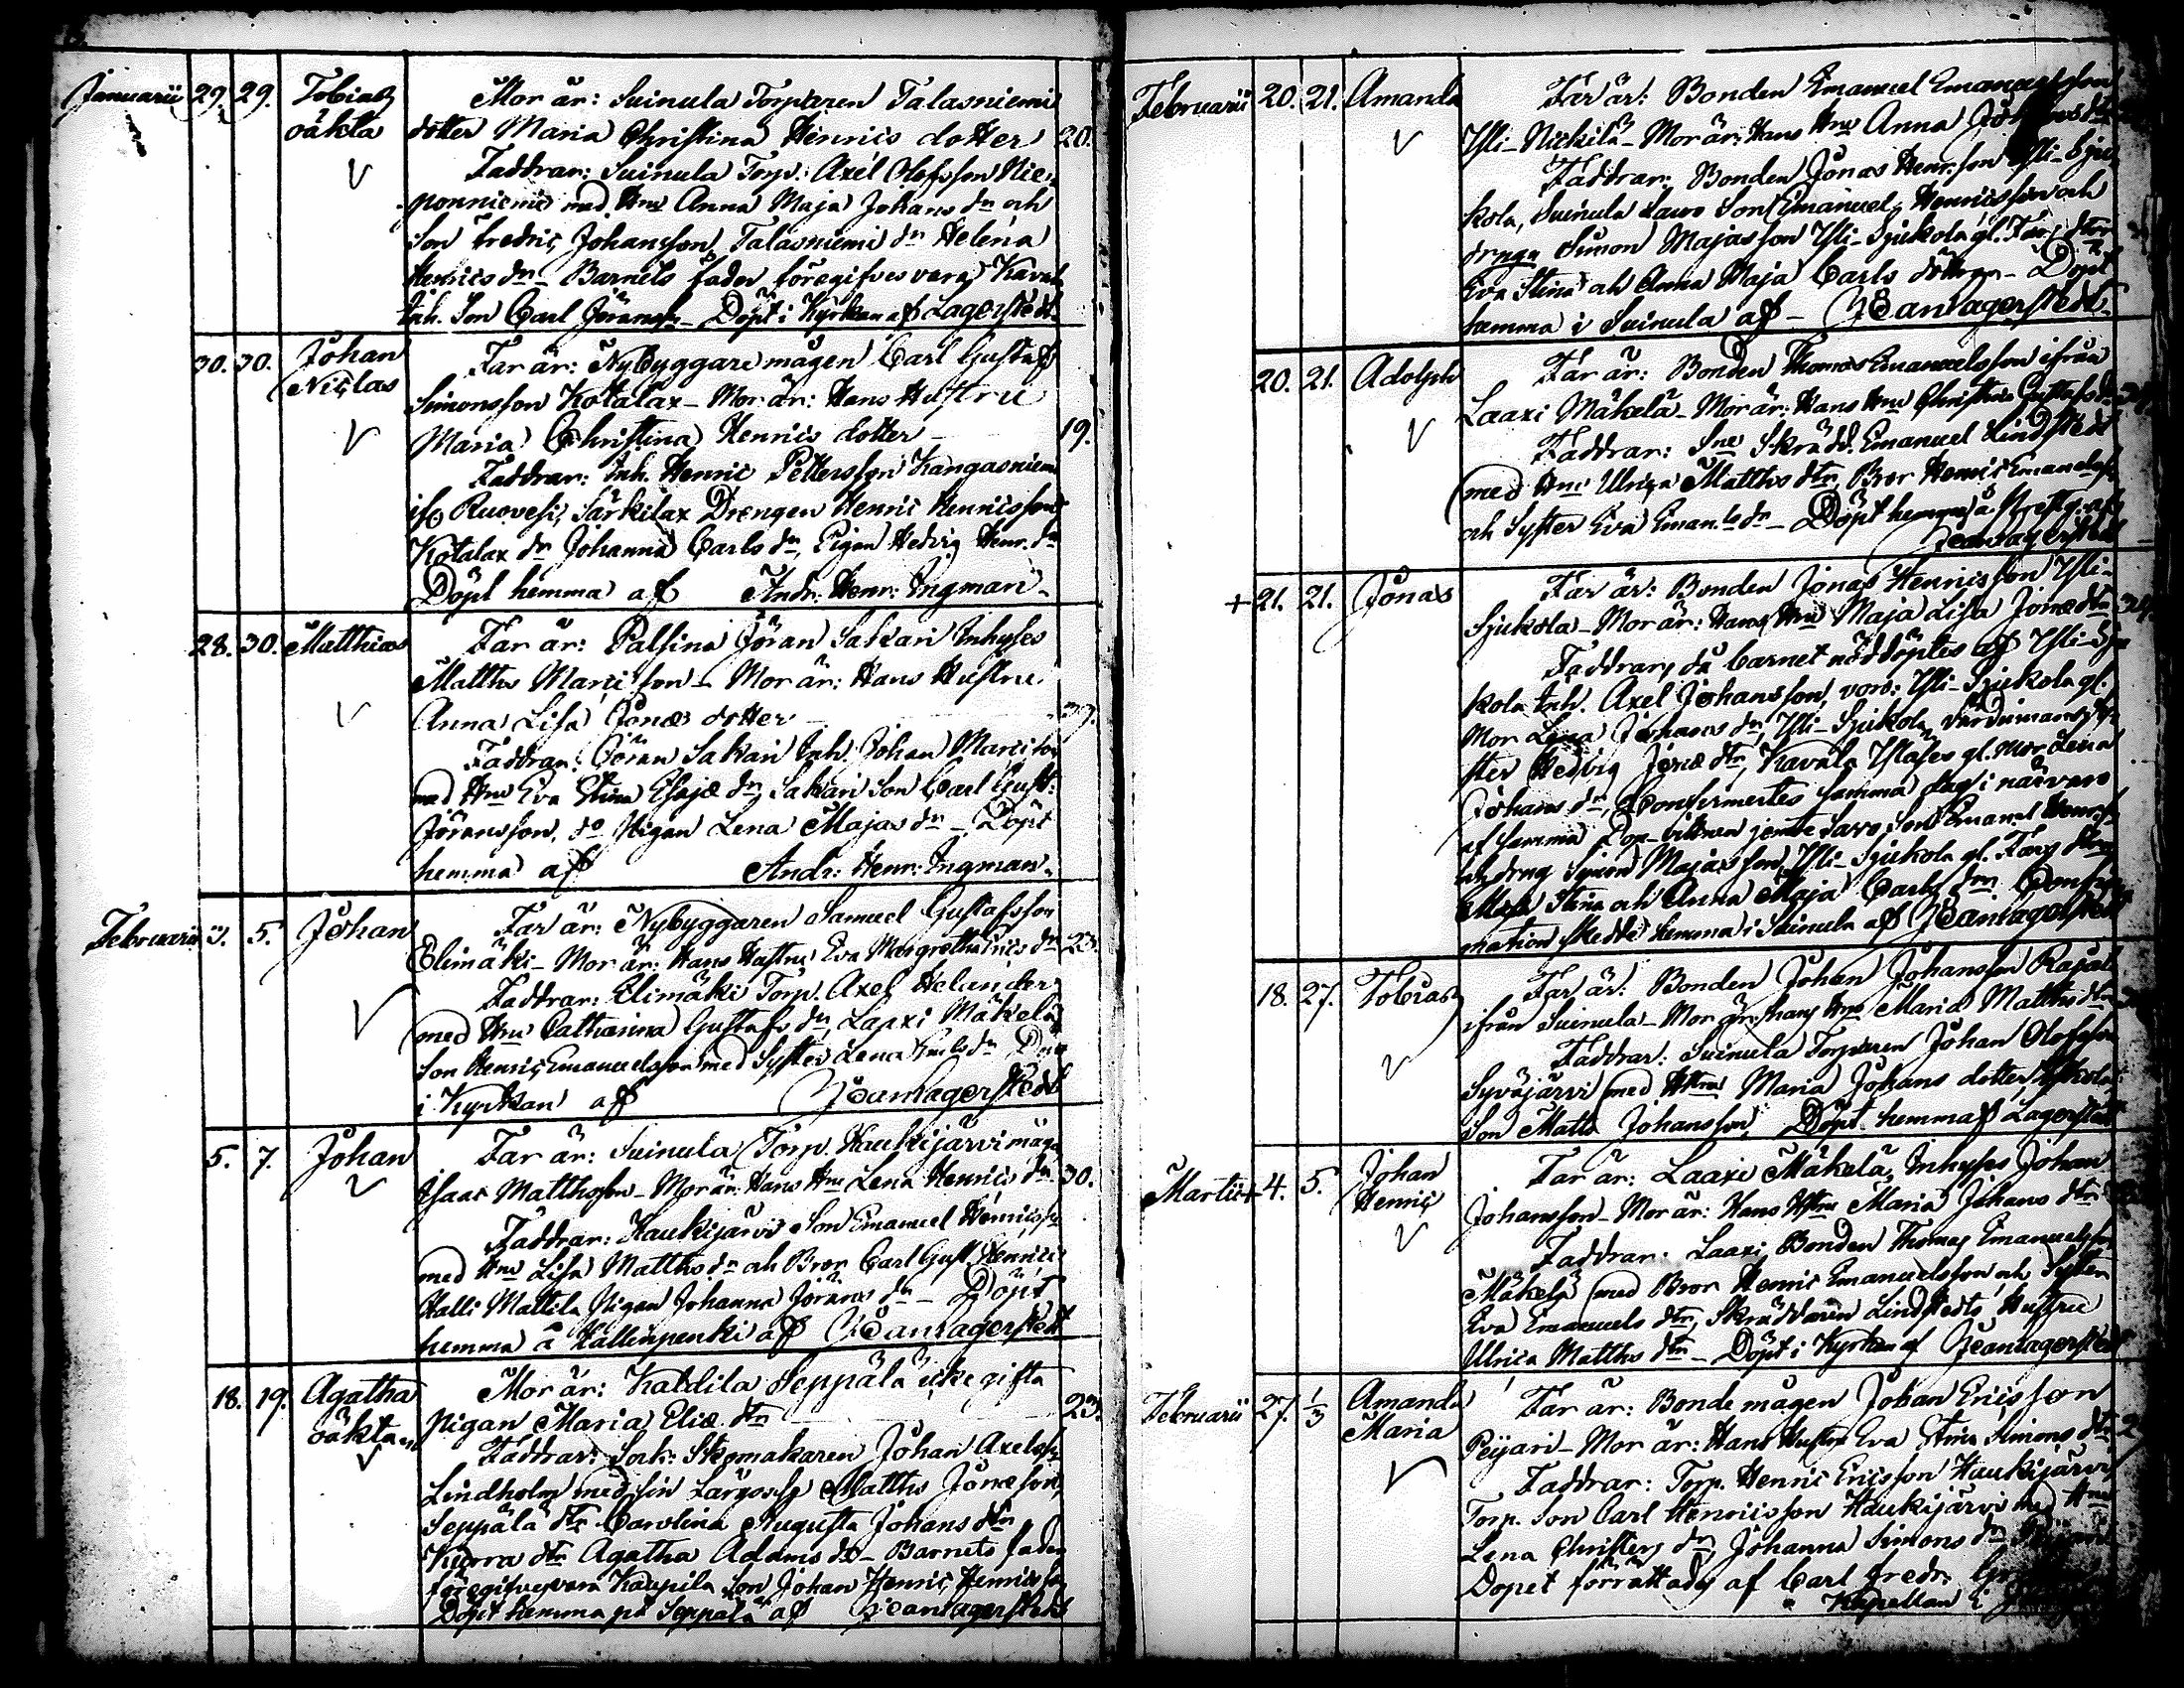 Januarii 29. 29. Tobias Mor är: Suinula Torparen Talasniemi
oäkta dotter Maria Christina Henrics dotter 20.
Faddrar: Suinula Torp. Axel Olofsson
med Hu Anna Maja Johans dr och
Son Fredric Johansson, Talasniemi dr Helena
Henrics dr - Barnets fader föregifves vara
Inh. Son Carl - Döpt i Kyrkan af Lagerstedt.
30. 30. Johan Far är: Nybyggare mågen Carl Gustaf
Niclas Simonsson Kotalax - Mor är: Hans Hustru
Maria Christina Henrics dotter - 19.
Faddrar: Inh. Henric Pettersson Kangasniemi
ifr. Ruovesi, Särkilax Drengen Henric Henricsson
Kotalax dr Johanna Carls dr, Pigan Hedvig Henr. dr
Döpt hemma af Andr: Henr: Ingman.
28. 30. Matthias Far är: Palsina Jöran Sakari Inhyses
Matths - Mor är: Hans Hustru
Anna Lisa Jonæ dotter
Faddrar: Jöran Sakari Inh. Johan
med Hu Eva Stina Esajæ dr, Sakari Son Carl Gust:
Jöransson, do Pigan Lena Majas dr - Döpt
hemma af Andr: Henr: Ingman.
Februarii 3. 5. Johan Far är: Nybyggaren Samuel Gustafsson
Elimäki - Mor är: Hans Hustru Eva Margretha Erics dr 23.
Faddrar: Elimäki Torp. Axel Helander
med Hu Catharina Gustafs dr, Laaxi Mäkelä
Son Henric Emanuelsson med Syster Lena
i Kyrkan af Lagerstedt
5. 7. Johan Far är: Suinula Torp. Haukijärvi mågen
Isaac Matthsson - Mor är: Hans Hu Lena Henrics dr 30.
Faddrar: Haukijärvi Son Emanuel Henricsson
med Hu Lisa Matths dr och Bror Carl Gust. Henrics
Halli Mattila Pigan Johanna Jörans dr - Döpt
hemma å Hallinpenki af Lagerstedt
18. 19. Agatha Mor är: Kaldila Seppälä icke gifta
oäkta pigan Maria Eliæ dr 23.
Faddrar: Sok: Skomakaren Johan Axelss:
Lindholm med sin Matths Jonæson,
Seppälä dr Carolina Augusta Johans dr
dr Agatha Adams dr - Barnets fader
föregifves vara Kaupila Son Johan Henric Henricsson
Döpt hemma på Seppälä af Lagerstedt
Februarii 20. 21. Amanda Far är: Bonden Emanuel Emanuelsson
Yli-Nickilä - Mor är: Hans Hu Anna Johans dr
Faddrar: Bonden Jonas Henr.son Yli-Sju
kola, Suinula Savo Son Emanuel Henricsson och
dryga Simon Majasson Yli-Sjukola gl. Fars dtr
Eva Stina och Anna Maja Carls döttrar - Döpt
hemma i Suinula af - Lagerstedt.
20. 21. Adolph Far är: Bonden Thomas Emanuelsson ifrån
Laaxi Mäkelä - Mor är: Hans Hu Christina Gustafs dr
Faddrar: Sne Skrädd. Emanuel Lindstedt
med Hu Ulrica Matths dtr, Bror Henric Emanuelss:
och Syster Eva Eman.ls dr - Döpt hemma å af
Lagerstedt
+ 21. 21. Jonas Far är: Bonden Jonas Henricsson Yli-
Sjukola - Mor är: Hans Hu Maja Lisa Jonæ dtr
Faddrar, då barnet nöddöptes af Yli-Sju
kola Inh. Axel Johansson, voro: Yli-Sjukola gl.
Mor Lena Johans dr, Yli-Sjukola
ster Hedvig Jonæ dtr, Kavala gl. Mor Lena
Johans dr, Confirmertes samma dag i närvaro
af samma Dop-vittnen jemte Savo Son Emanuel Henrics:
och dreng Simon Majasson, Yli-Sjukola gl. Fars dtr
Maja Stina och Anna Maja Carls drr Confir
mation skedde hemma i Suinula af Lagerstedt
18. 27. Tobias Far är: Bonden Johan Johansson
ifrån Suinula - Mor är: hans Hu Maria Matths dtr
Faddrar: Suinula Torparen Johan Olofsson
Syväjärvi med Hustru Maria Johans dotter,
Son Matts Johansson, Döpt hemma af Lagerstedt
Martii + 4. 5. Johan Far är: Laaxi Mäkelä, Inhyses Johan
Henric Johansson - Mor är: Hans Hustru Maria Johans dtr
Faddrar: Laaxi, Bonden Thomas Emanuelsson
Mäkelä med Bror Henric Emanuelsson och Syster
Eva Emanuels dtr, Skräddaren Lindstedts Hustru
Ulrica Matths dtr - Döpt i Kyrkan af Lagerstedt
Februarii 27. 1/3 Amanda Far är: Bonde mågen Johan Ericsson
Maria Peijari - Mor är: Hans Hustru Eva Stina Simons dtr
Faddrar: Torp. Henric Ericsson Haukijärvi
Torp. Son Carl Henricsson Haukijärvi med Hu
Lena Christers dr, Johanna Simons dr
Dopet förrättades af Carl Fredr.
Kapellan i